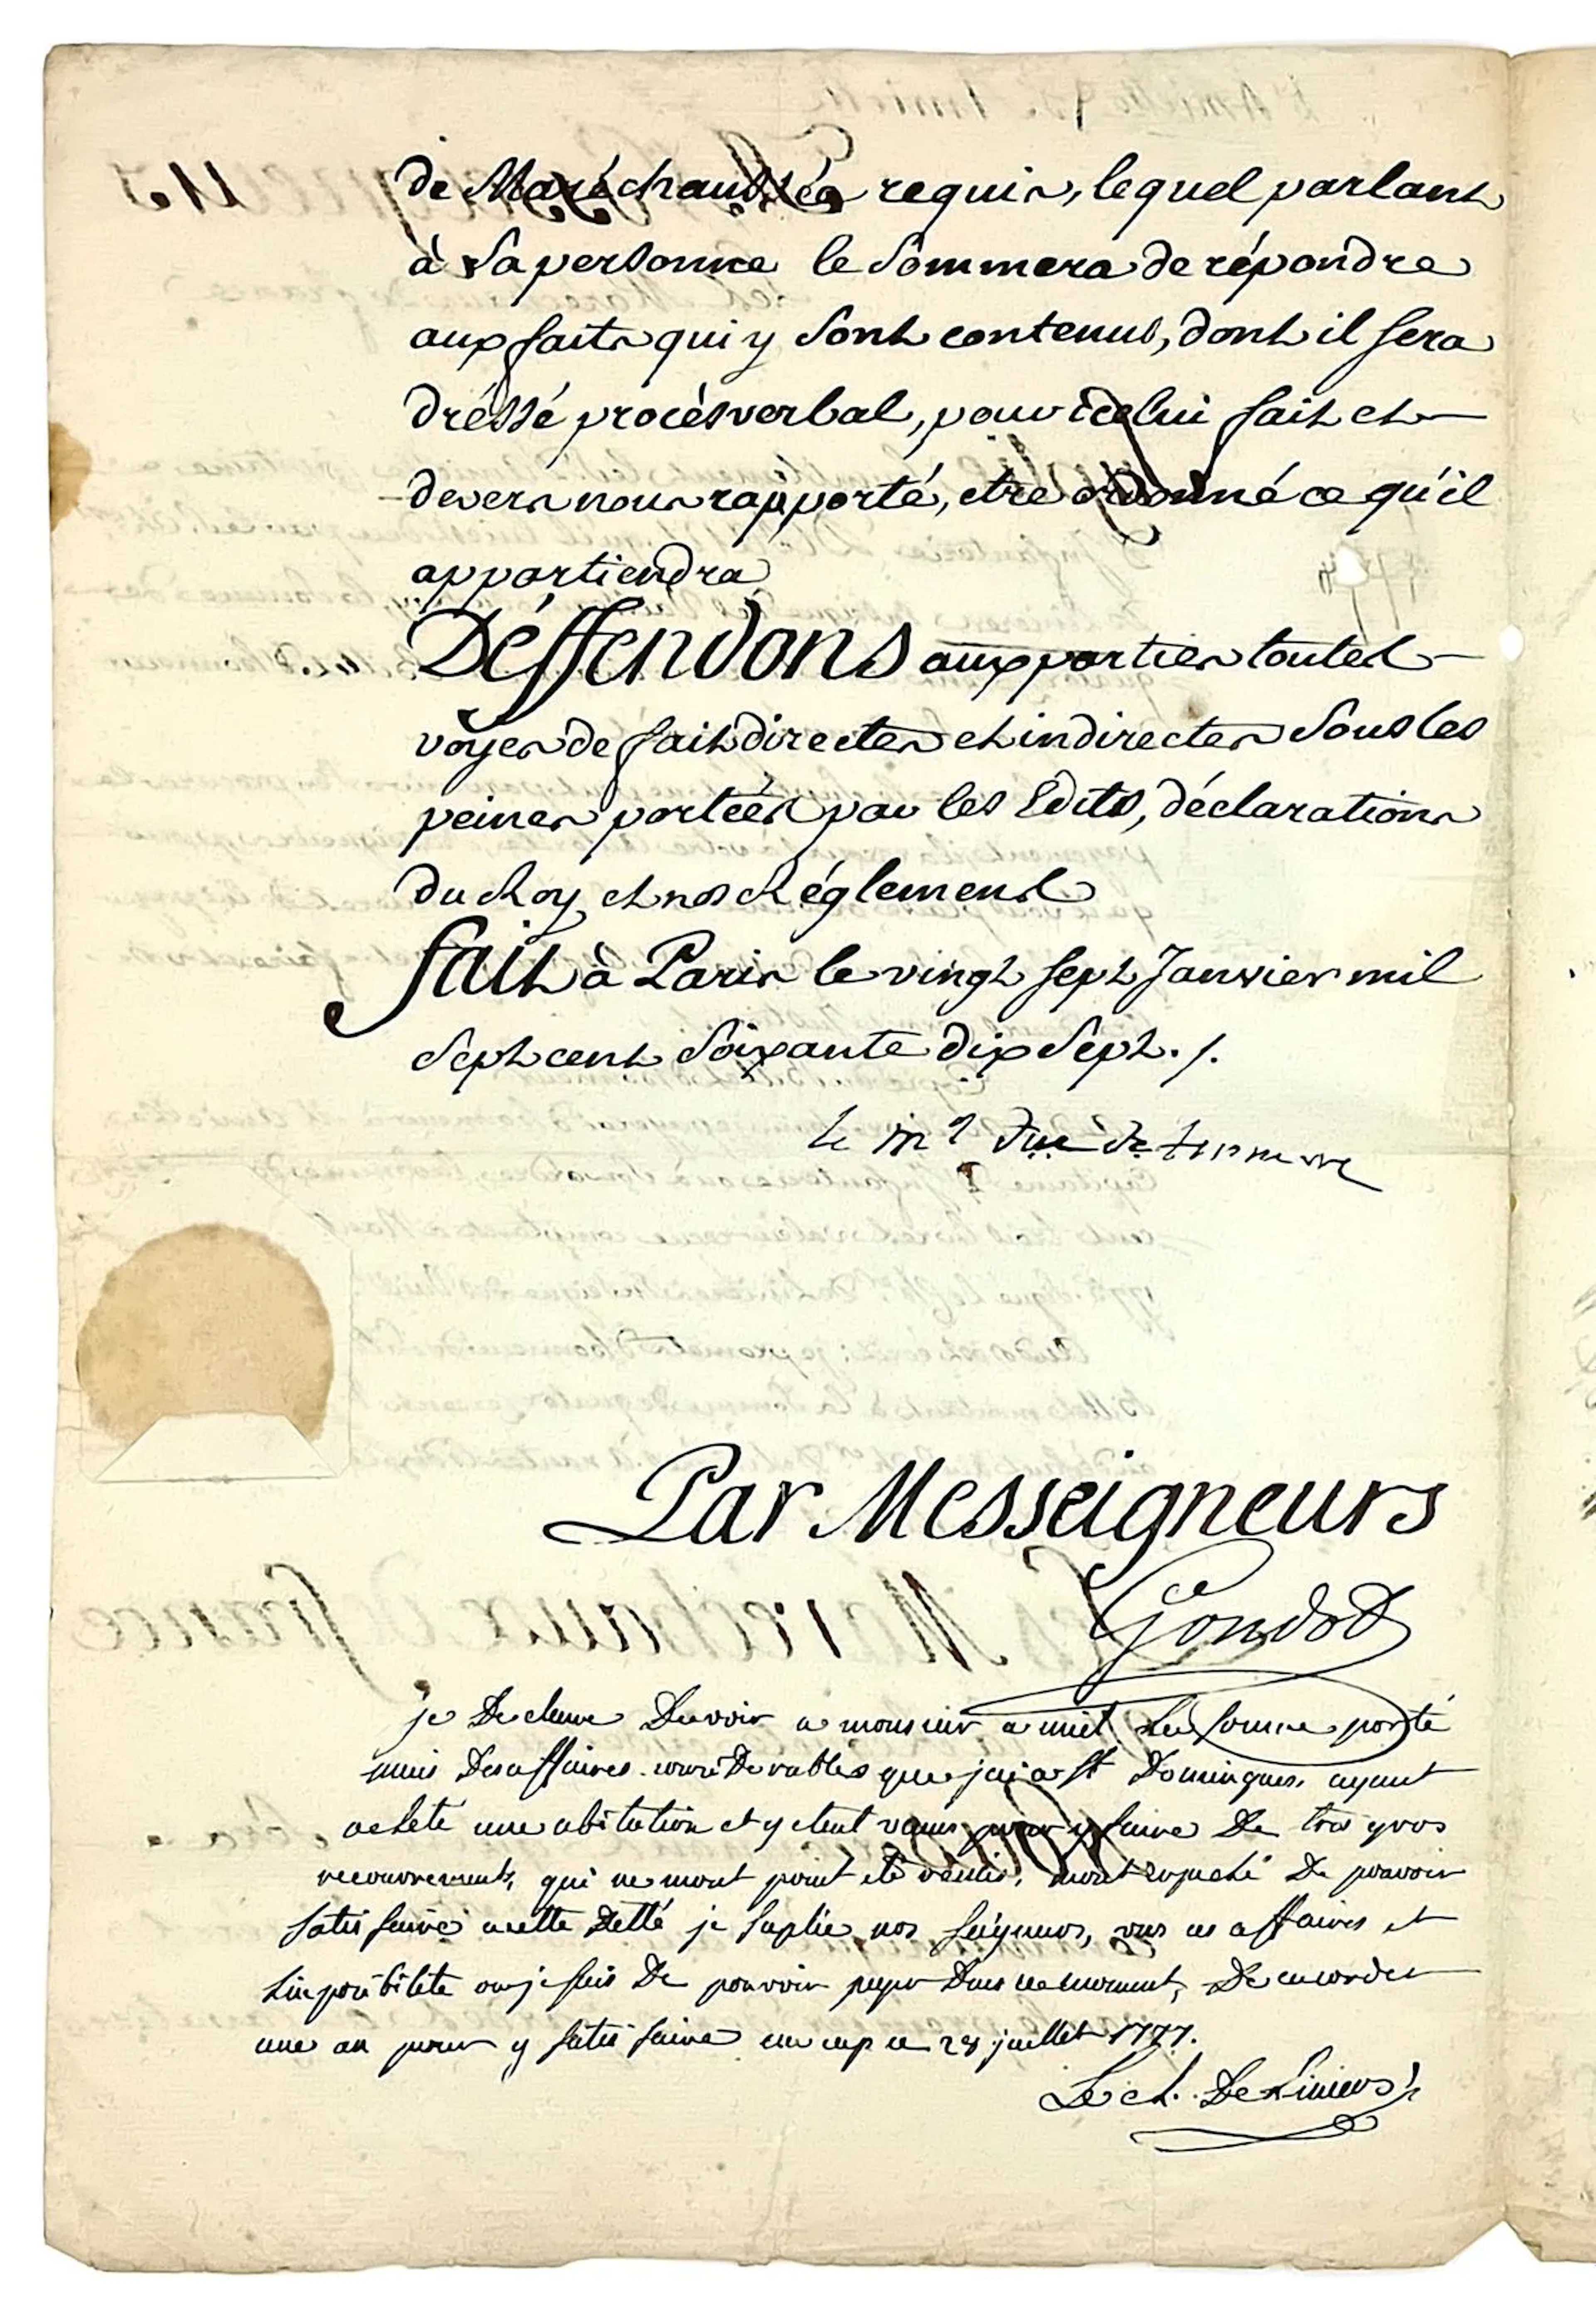 de Maréchaussée requis, lequel parlant
à Sa personne le Sommera de répondre
aux faits qui y Sont contenus, dont il sera
dréssé procèsverbal, pour icelui fait et
devers nous rapporté, etre ordonné ce qu'il
appartiendra
Déffendons aux parties toutes
voyes de fait directes et indirectes Sous les
peines portées par les Edits, déclarations
du Roy, et nos Réglemens
fait à Paris le vingt sept Janvier mil
Sept cent Soixante dix Sept ./.
le mal duc de tonnerre
Par Messeigneurs
Gondot
je Declare Devoir a monsieur amiet La somme porté
mais Des affaires considerables que jai a st Domingue, ayant
acheté une abitation et y etent venus pour y faire De tres gros
recouvrements, qui ne mont point été rentré, mont enpeché De pouvoir
satis faire a cette Detté je suplie nos seigneurs, vus ces affaires et
linposibilete ou je suis De pouvoir peyer Dans ce moment, De maccorder
une an pour y satis faire au cap ce 28 juillet 1777.
Le ch. De Liniers